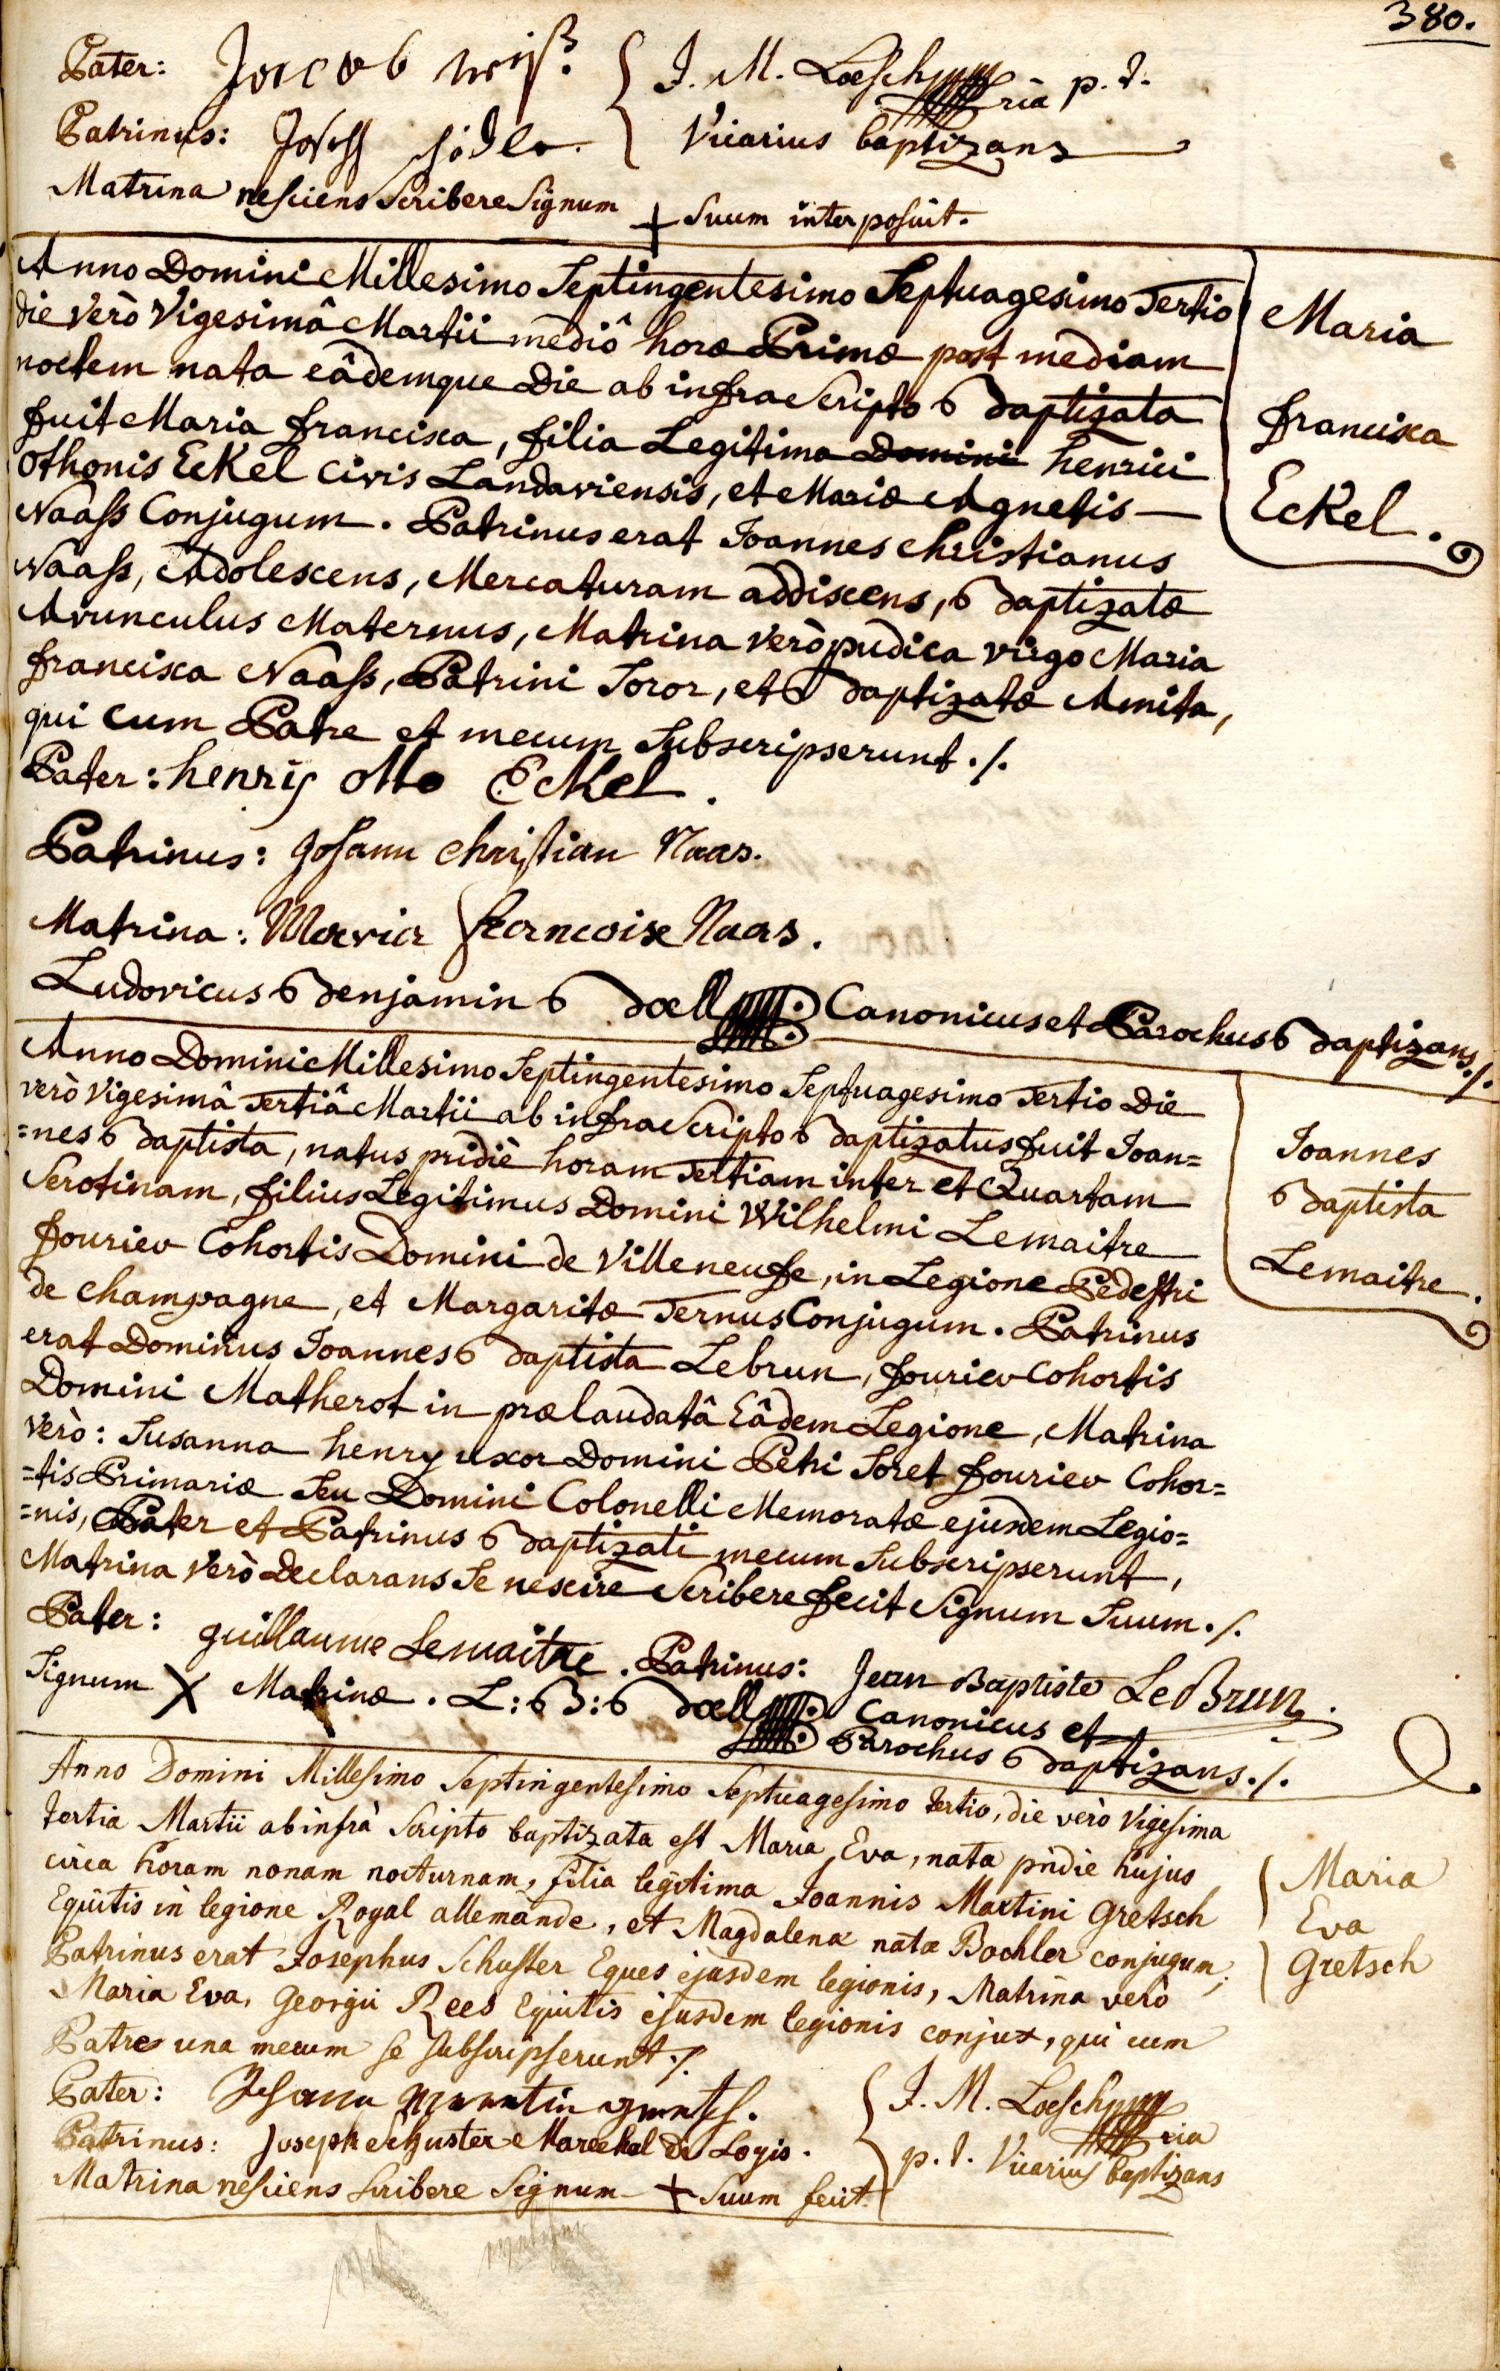 380.
Pater: Jacob weiß. J. M. Loesch p. t.
Patrinus: Joseph Vicarius baptizans
Matrina nesciens Scribere Signum + Suum interposuit.
Anno Domini Millesimo Septingentesimo Septuagesimo Tertio
die verò Vigesimâ Martii mediô horæ Primæ post mediam
noctem nata eâdemque Die ab infraScripto Baptizata
fuit Maria francisca, filia Legitima Domini henrici
Othonis Eckel civis Landaviensis, et Mariæ Agnetis
Naass Conjugum. Patrinus erat Joannes Christianus
Naass, Adolescens, Mercaturam addiscens, Baptizatæ
Avunculus Maternus, Matrina verò pudica virgo Maria
francisca Naass, Patrini Soror, et Baptizatæ Amita,
qui cum Patre et mecum Subscripserunt ./.
Maria
francisca
Eckel.
Pater: henrij otto Eckel.
Patrinus: Johann Christian Naas.
Matrina: Maria francoise Naas.
Ludovicus Benjamin Boell Canonicus et Parochus Baptizans ./.
Anno Domini Millesimo Septingentesimo Septuagesimo Tertio Die
verò Vigesimâ Tertiâ Martii ab infraScripto Baptizatus fuit Joan=
=nes Baptista, natus pridiè horam Tertiam inter et Quartam
Serotinam, filius Legitimus Domini Wilhelmi Lemaitre
fourier Cohortis Domini de Villeneufe, in Legione Pedestri
de Champagne, et Margaritæ Ternus Conjugum. Patrinus
erat Dominus Joannes Baptista Lebrun, fourier Cohortis
Domini Matherot in prælaudatâ Eâdem Legione, Matrina
verò: Susanna henry uxor Domini Petri Soret fourier Cohor=
=tis Primariæ Seu Domini Colonelli Memoratæ ejusdem Legio=
=nis, Pater et Patrinus Baptizati mecum Subscripserunt,
Matrina verò Declarans Se nescire Scribere fecit Signum Suum ./.
Joannes
Baptista
Lemaitre.
Pater: guillaume Lemaitre. Patrinus: Jean Baptiste LeBrun.
Signum X Matrinæ. L: B: Boell Canonicus et
Parochus Baptizans ./.
Anno Domini Millesimo Septingentesimo Septuagesimo tertio, die verò Vigesima
tertia Martii ab infrà Scripto baptizata est Maria Eva, nata pridie hujus
circa horam nonam nocturnam, filia legitima Joannis Martini Gretsch
Equitis in legione Royal allemande, et Magdalenæ natæ Bochler conjugum;
Patrinus erat Josephus Schuster Eques ejusdem legionis, Matrina verò
Maria Eva, Georgii Rees Equitis ejusdem legionis conjux, qui cum
Patre una mecum se subscripserunt ./.
Maria
Eva
Gretsch
Pater: Johann Martin J. M. Loesch
Patrinus: Joseph schuster Marechal De Logis. p. t. Vicarius baptizans
Matrina nesciens scribere Signum + Suum fecit.